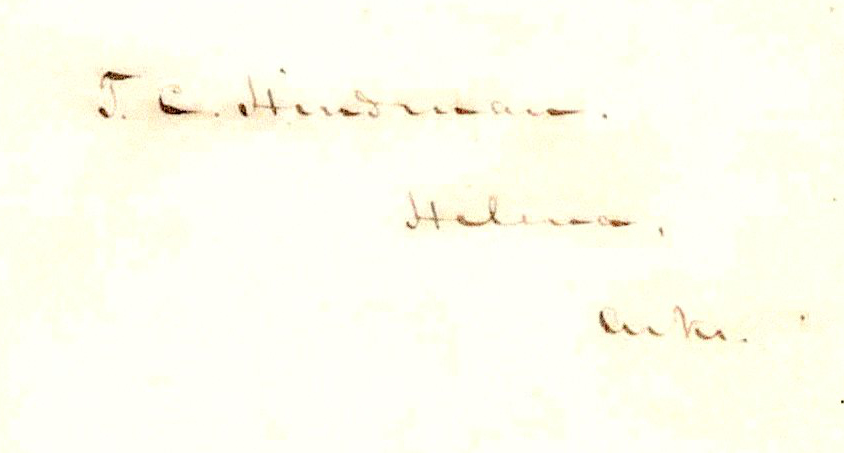 T. C. Hindman.
Helena,
Arks.